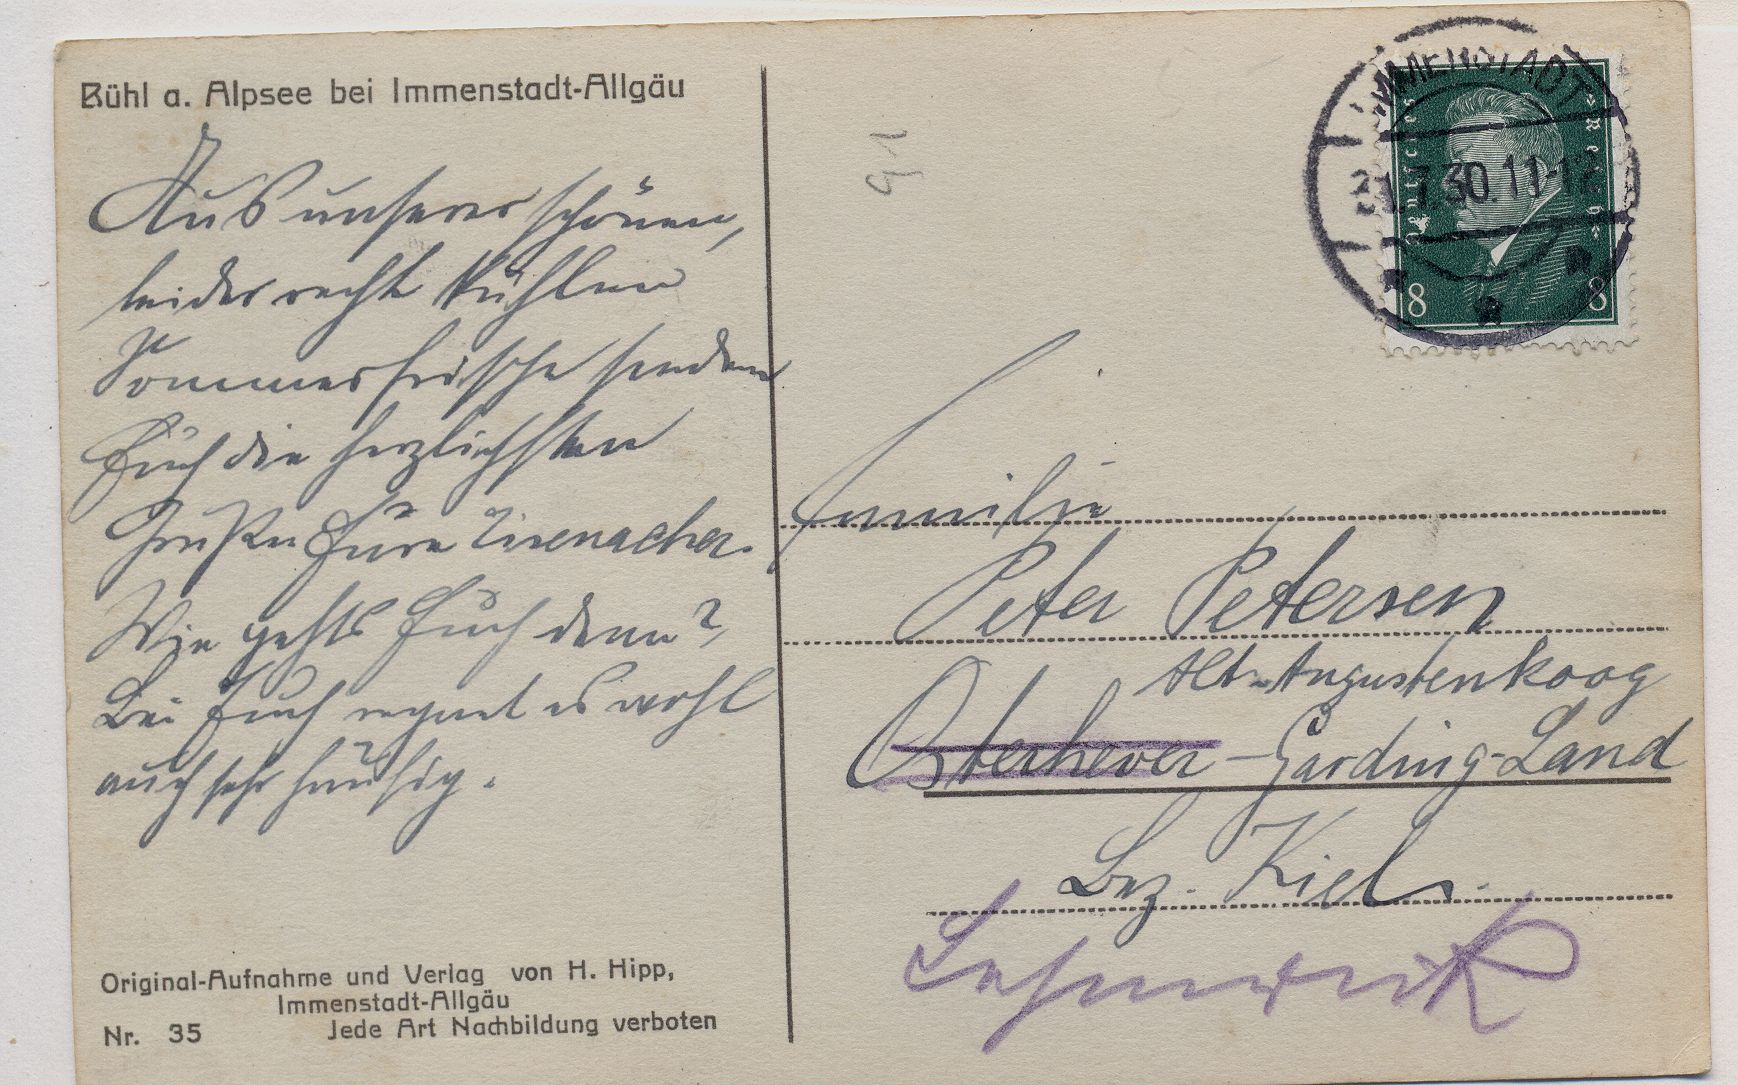 Bühl a. Alpsee bei Immenstadt-Allgäu
Aus unserer schönen,
leider recht kühlen
Sommerfrische senden
Euch die herzlichsten
Grüße Eure Eisenacher.
Wie gehts Euch denn?
Bei Euch regnet es wohl
auch sehr häufig.
Original-Aufnahme und Verlag von H. Hipp,
Immenstadt-Allgäu
Nr. 35 Jede Art Nachbildung verboten
91
IMMENSTADT
21.7.30.11-12
Deutsches Reich
8 8
Familie
Peter Petersen
Alt-Augustenkoog
Osterhever-Garding-Land
Bez. Kiel.